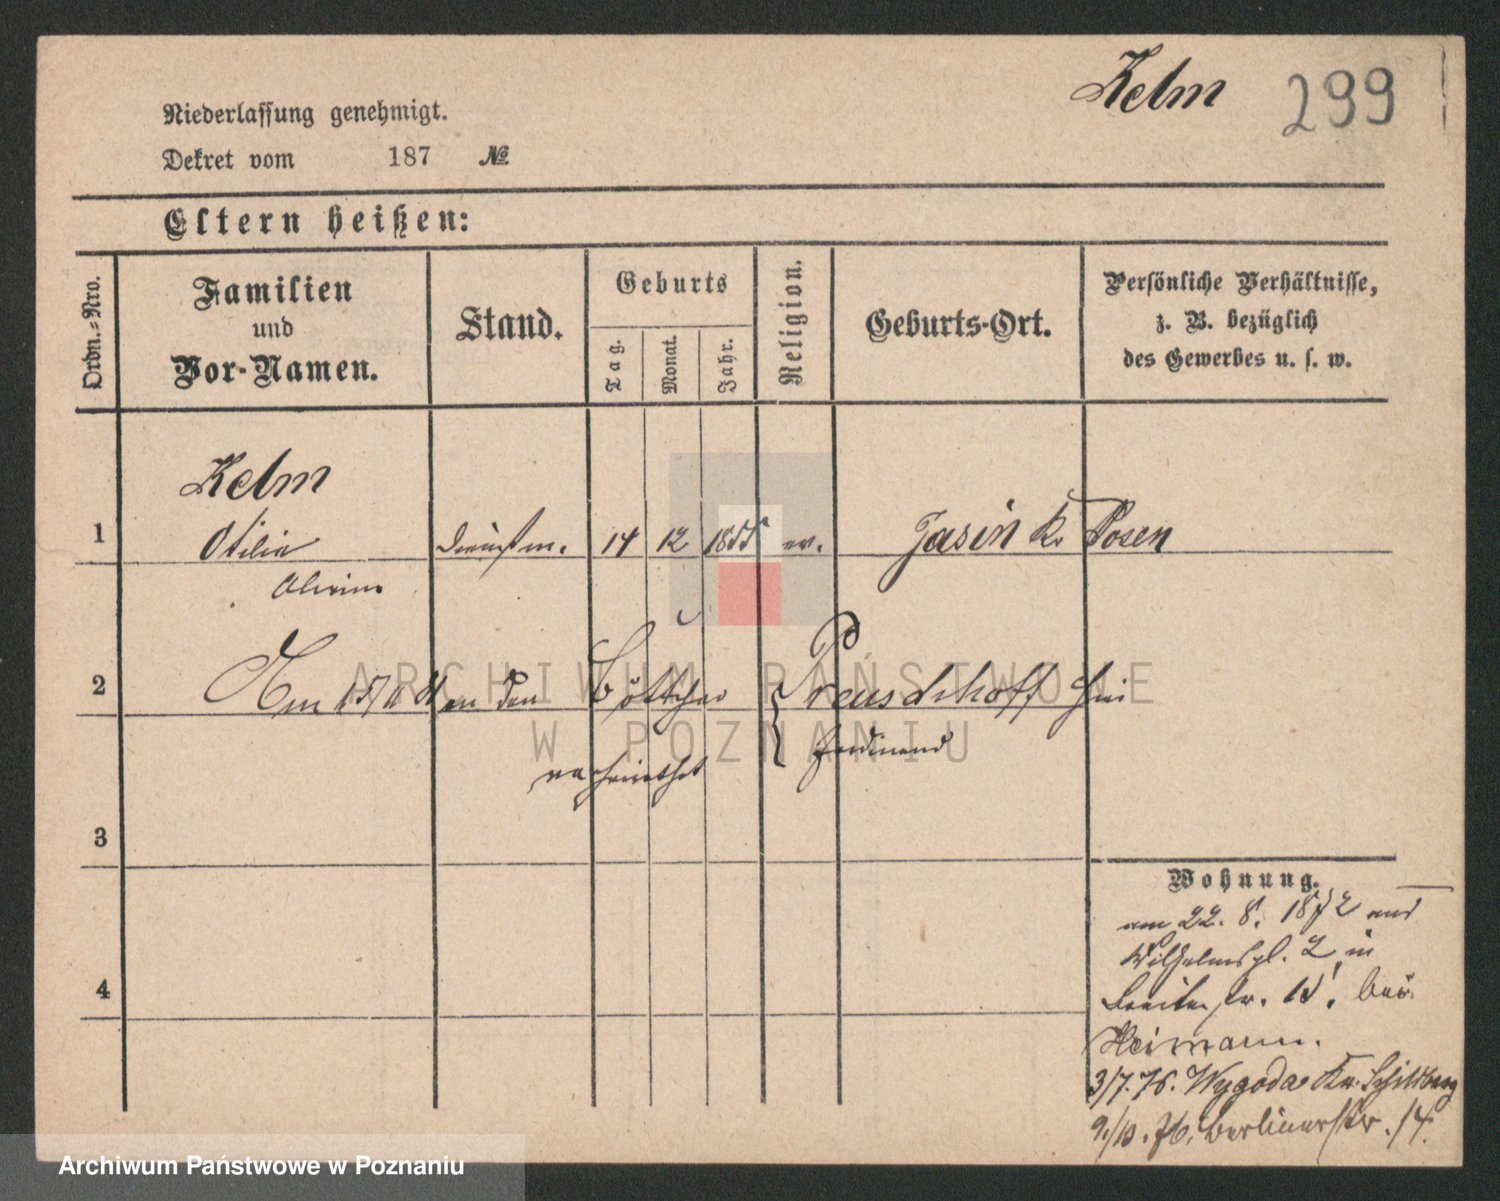 Kelm 299
Niederlassung genehmigt.
Dekret vom 187 №
Eltern heißen:
Ordn.-Nro.
Familien
und
Vor-Namen.
Stand.
Geburts
Tag.
Monat.
Jahr.
Religion.
Geburts-Ort.
Persönliche Verhältnisse,
z. B. bezüglich
des Gewerbes u. s. w.
Kelm
1 Otilie Dienstm. 14 12 1855 ev. Jasin Kr Posen
2 Am den Böttcher Preuschhoff
Ferdinand
verheirathet
3
4
Wohnung.
am 22. 8. 1872 aus
Wilhelmspl. 2 in
Breitestr. 15. bei
Heimann.
3/7. 76. Wygoda Kr. Schildberg
9./10. 76. Berlinerstr. 14.
ARCHIWUM PAŃSTWOWE
W POZNANIU
Archiwum Państwowe w Poznaniu